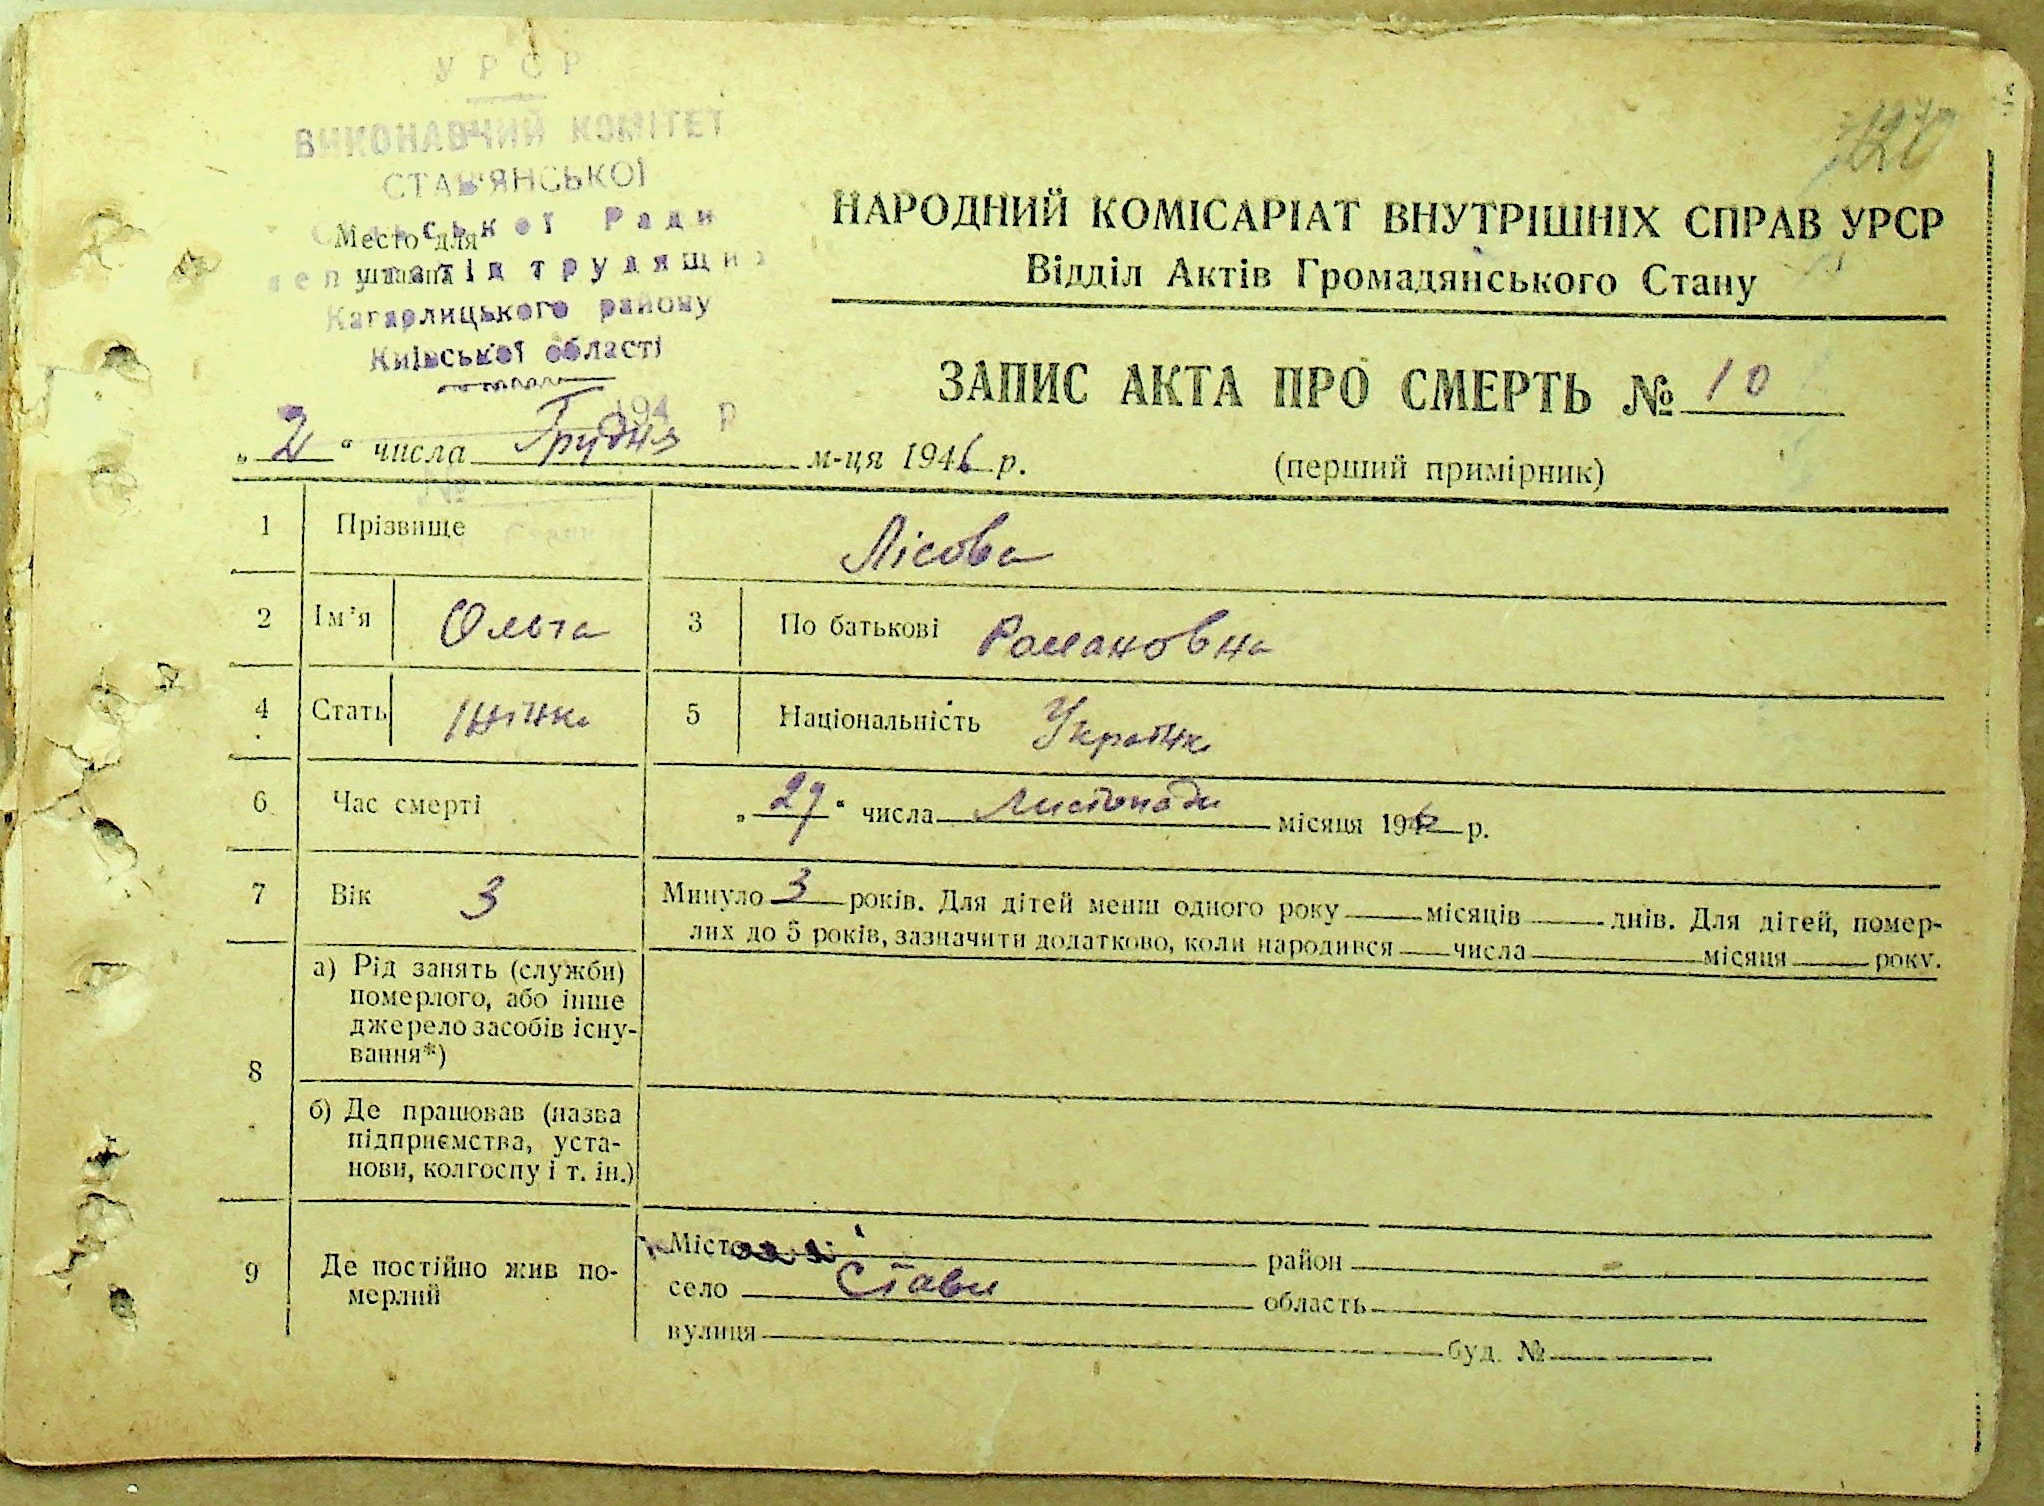 УРСР
ВИКОНАВЧИЙ КОМІТЕТ
СТАВ'ЯНСЬКОЇ
Сільської Ради
Место для
депутатів трудящих
штампа
Кагарлицького району
Київської області
194 р
№
120
НАРОДНИЙ КОМІСАРІАТ ВНУТРІШНІХ СПРАВ УРСР
Відділ Актів Громадянського Стану
ЗАПИС АКТА ПРО СМЕРТЬ № 10
„2“ числа Грудня м-ця 1946 р.
(перший примірник)
1 Прізвище Лісова
2 Ім'я Ольга 3 По батькові Романовна
4 Стать Жінка 5 Національність Українка
6 Час смерті „29“ числа Листопада місяця 1946 р.
7 Вік 3 Минуло 3 років. Для дітей менш одного року місяців днів. Для дітей, помер-
лих до 5 років, зазначити додатково, коли народився числа місяця року.
8 а) Рід занять (служби)
померлого, або інше
джерело засобів існу-
вання*)
б) Де працював (назва
підприємства, уста-
нови, колгоспу і т. ін.)
9 Де постійно жив по-
мерлий
Місто район
село Стави область
вулиця буд. №